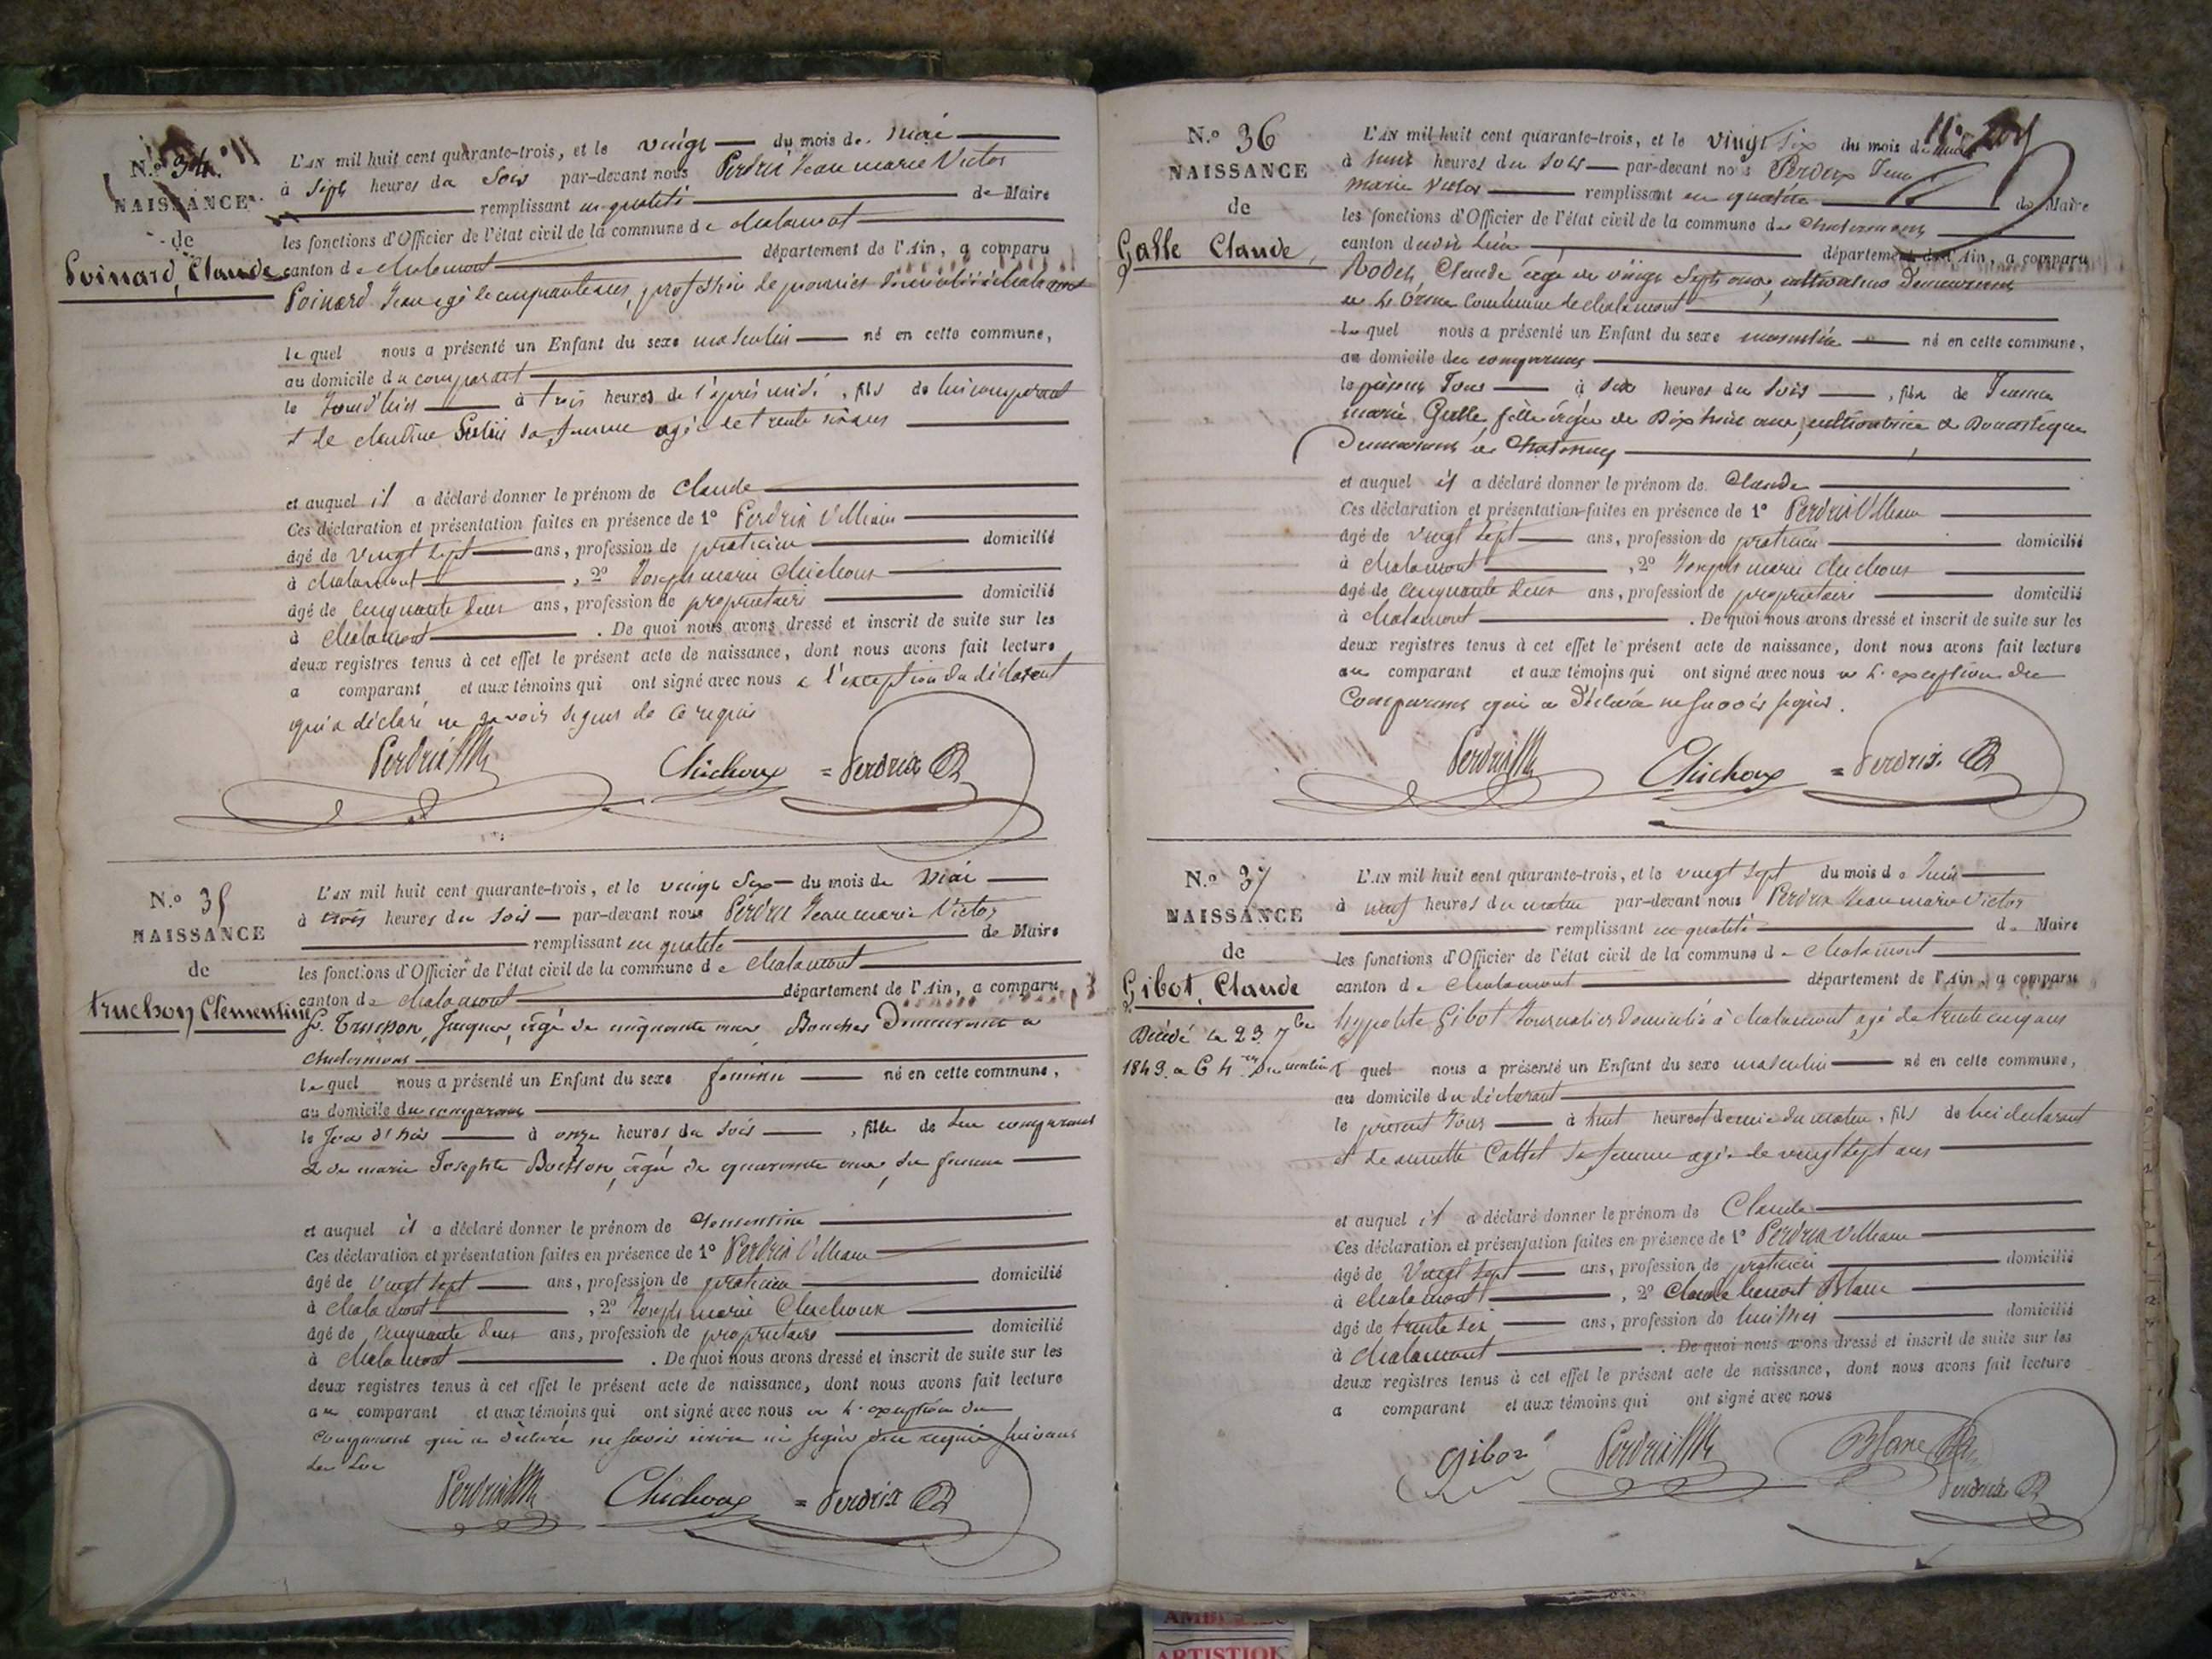 N.o 34.
NAISSANCE
de
Poinard, Claude
L'AN mil huit cent quarante-trois, et le vingt du mois de Mai
à Sept heures du Soir par-devant nous Perdrix Jean marie Victor
remplissant en qualité de Maire
les fonctions d'Officier de l'état civil de la commune de chalamont
canton de chalamont département de l'Ain, a comparu
Poinard Jean agé de cinquante ans, profession de
le quel nous a présenté un Enfant du sexe masculin né en cette commune,
au domicile du comparant
le jour d'hier à trois heures de l'après midi, fils de lui comparant
et de claudine sa femme agée de trente ans
et auquel il a déclaré donner le prénom de Claude
Ces déclaration et présentation faites en présence de 1° Perdrix William
âgé de vingt sept ans, profession de praticien domicilié
à chalamont, 2° Joseph marie Chichoux
âgé de cinquante deux ans, profession de propriétaire domicilié
à chalamont. De quoi nous avons dressé et inscrit de suite sur les
deux registres tenus à cet effet le présent acte de naissance, dont nous avons fait lecture
a comparant et aux témoins qui ont signé avec nous a l'exception du déclarant
qui a déclaré ne savoir signer de ce requis
Perdrix Chichoux = Perdrix
N.o 35
NAISSANCE
de
truchon Clementine
L'AN mil huit cent quarante-trois, et le vingt Six du mois de Mai
à trois heures du soir par-devant nous Perdrix Jean marie Victor
remplissant en qualité de Maire
les fonctions d'Officier de l'état civil de la commune de chalamont
canton de chalamont département de l'Ain, a comparu
Truchon, Jacques, âgé de cinquante ans, Boucher Demeurant a
chalamont
le quel nous a présenté un Enfant du sexe feminin né en cette commune,
au domicile du comparant
le Jour d'hier à onze heures du soir, fille de lui comparant
& de marie Josephte Buisson, âgée de quarante ans, sa femme
et auquel il a déclaré donner le prénom de Clementine
Ces déclaration et présentation faites en présence de 1° Perdrix William
âgé de vingt sept ans, profession de praticien domicilié
à chalamont, 2° Joseph marie Chichoux
âgé de cinquante deux ans, profession de propriétaire domicilié
à chalamont. De quoi nous avons dressé et inscrit de suite sur les
deux registres tenus à cet effet le présent acte de naissance, dont nous avons fait lecture
au comparant et aux témoins qui ont signé avec nous a l'exception du
comparant qui a déclaré ne savoir ni signer de ce requis suivant
la loi
Perdrix Chichoux = Perdrix
N.o 36
NAISSANCE
de
Galle Claude,
L'AN mil huit cent quarante-trois, et le vingt six du mois de
à huit heures du soir par-devant nous Perdrix Jean
marie Victor remplissant en qualité de Maire
les fonctions d'Officier de l'état civil de la commune de Chalamont
canton dudit lieu département de l'Ain, a comparu
Rodet, Claude âgé de vingt Sept ans, cultivateur Demeurant
commune de chalamont
le quel nous a présenté un Enfant du sexe masculin né en cette commune,
au domicile du comparant
le présent Jour à six heures du soir, fils de Jeanne
marie Galle, fille âgée de Dix huit ans, cultivatrice & Domestique
Demeurant a Chatenay
et auquel il a déclaré donner le prénom de Claude
Ces déclaration et présentation faites en présence de 1° Perdrix William
âgé de vingt sept ans, profession de praticien domicilié
à chalamont, 2° Joseph marie Chichoux
âgé de cinquante deux ans, profession de propriétaire domicilié
à chalamont. De quoi nous avons dressé et inscrit de suite sur les
deux registres tenus à cet effet le présent acte de naissance, dont nous avons fait lecture
au comparant et aux témoins qui ont signé avec nous a l'exception du
Comparant qui a Déclaré ne savoir signer.
Perdrix Chichoux = Perdrix
N.o 37
NAISSANCE
de
Gibot, Claude
Décédé le 23 7bre
1849. a 6 h du matin
L'AN mil huit cent quarante-trois, et le vingt sept du mois de
à neuf heures du matin par-devant nous Perdrix Jean marie Victor
remplissant en qualité de Maire
les fonctions d'Officier de l'état civil de la commune de chalamont
canton de chalamont département de l'Ain, a comparu
hyppolite Gibot Journalier domicilié à chalamont, agé de trente cinq ans
le quel nous a présenté un Enfant du sexe masculin né en cette commune,
au domicile du déclarant
le présent Jour à huit heures et demie du matin, fils de lui déclarant
et de Cattet sa femme agée de vingt sept ans
et auquel il a déclaré donner le prénom de Claude
Ces déclaration et présentation faites en présence de 1° Perdrix William
âgé de vingt sept ans, profession de praticien domicilié
à chalamont, 2° Claude benoit Blanc
âgé de trente six ans, profession de huissier domicilié
à chalamont. De quoi nous avons dressé et inscrit de suite sur les
deux registres tenus à cet effet le présent acte de naissance, dont nous avons fait lecture
a comparant et aux témoins qui ont signé avec nous
Gibot Perdrix Blanc
Perdrix
ARTISTIQU